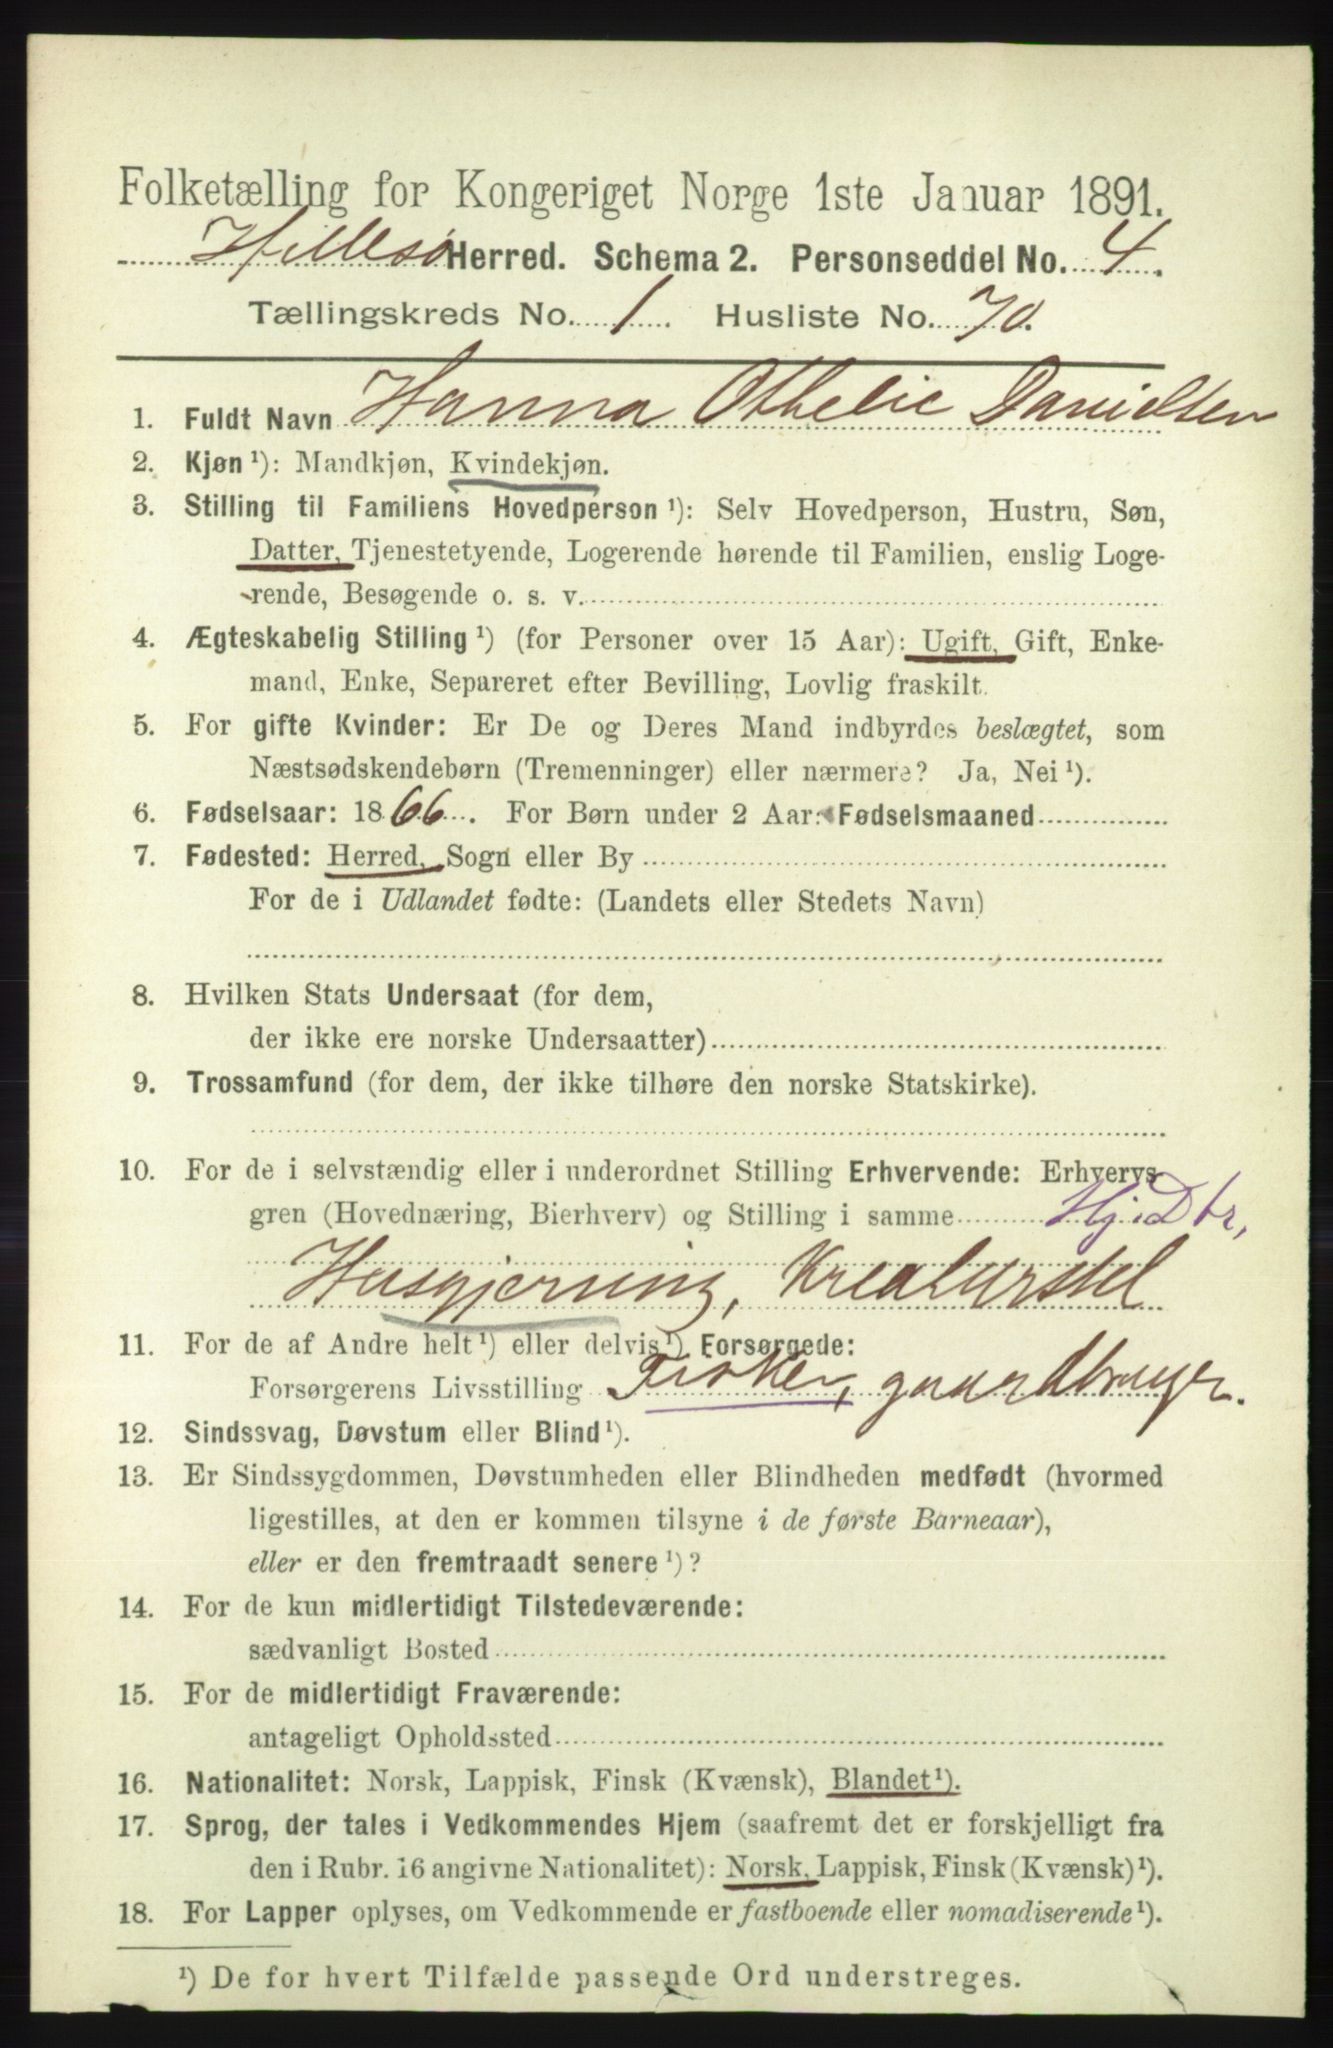 Folketælling for Kongeriget Norge 1ste Januar 1891.
Hillesø Herred. Schema 2. Personseddel No. 4.
Tællingskreds No. 1. Husliste No. 70.
1. Fuldt Navn Hanna Othelie Danielsen
2. Kjøn ¹): Mandkjøn, Kvindekjøn.
3. Stilling til Familiens Hovedperson ¹): Selv Hovedperson, Hustru, Søn,
Datter, Tjenestetyende, Logerende hørende til Familien, enslig Loge-
rende, Besøgende o. s. v.
4. Ægteskabelig Stilling ¹) (for Personer over 15 Aar): Ugift, Gift, Enke-
mand, Enke, Separeret efter Bevilling, Lovlig fraskilt.
5. For gifte Kvinder: Er De og Deres Mand indbyrdes beslægtet, som
Næstsødskendebørn (Tremenninger) eller nærmere? Ja, Nei ¹).
6. Fødselsaar: 1866. For Børn under 2 Aar: Fødselsmaaned
7. Fødested: Herred, Sogn eller By
For de i Udlandet fødte: (Landets eller Stedets Navn)
8. Hvilken Stats Undersaat (for dem,
der ikke ere norske Undersaatter)
9. Trossamfund (for dem, der ikke tilhøre den norske Statskirke).
10. For de i selvstændig eller i underordnet Stilling Erhvervende: Erhvervs-
gren (Hovednæring, Bierhverv) og Stilling i samme Hj. Dtr,
Husgjerning, Kreaturstel
11. For de af Andre helt ¹) eller delvis ¹) Forsørgede:
Forsørgerens Livsstilling Fisker, gaardbruger.
12. Sindssvag, Døvstum eller Blind ¹).
13. Er Sindssygdommen, Døvstumheden eller Blindheden medfødt (hvormed
ligestilles, at den er kommen tilsyne i de første Barneaar),
eller er den fremtraadt senere ¹)?
14. For de kun midlertidigt Tilstedeværende:
sædvanligt Bosted
15. For de midlertidigt Fraværende:
antageligt Opholdssted
16. Nationalitet: Norsk, Lappisk, Finsk (Kvænsk), Blandet ¹).
17. Sprog, der tales i Vedkommendes Hjem (saafremt det er forskjelligt fra
den i Rubr. 16 angivne Nationalitet): Norsk, Lappisk, Finsk (Kvænsk) ¹).
18. For Lapper oplyses, om Vedkommende er fastboende eller nomadiserende ¹).
¹) De for hvert Tilfælde passende Ord understreges.